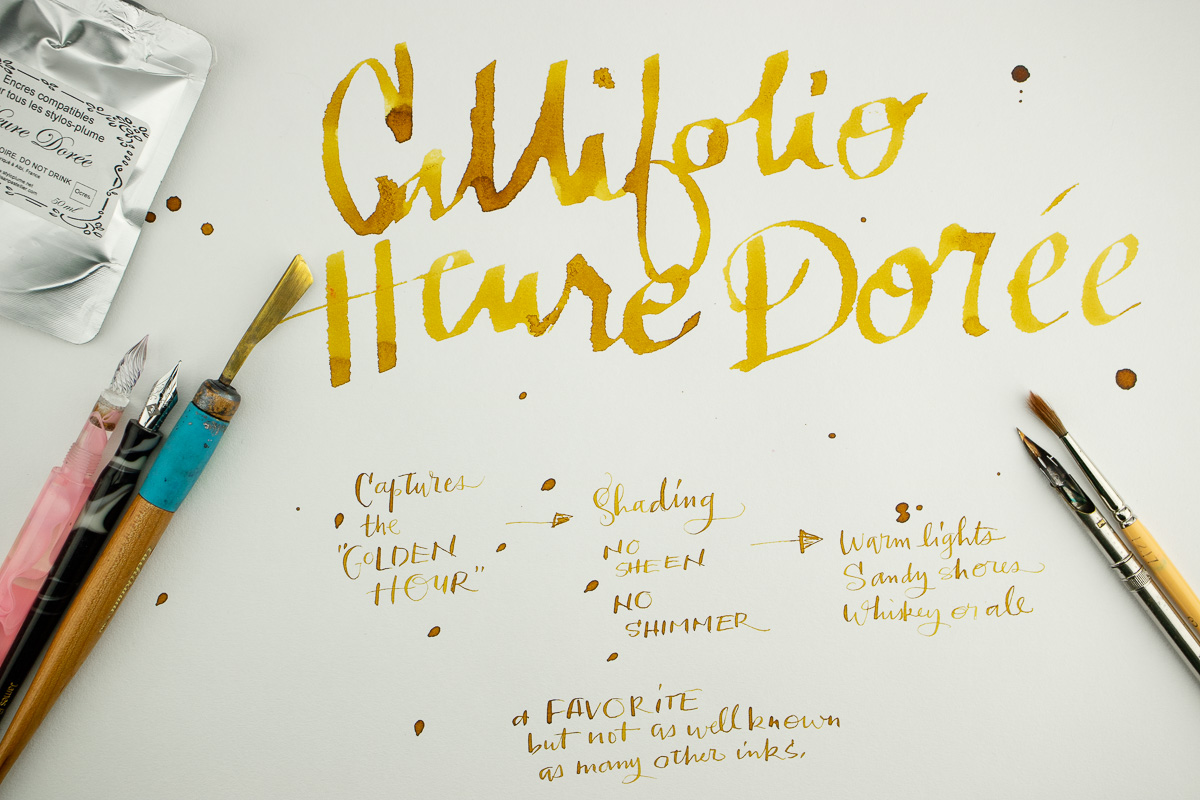 Encres compatibles
tous les stylos-plume
Heure Dorée
DO NOT DRINK
Ocres
50 ml
Callifolio
Heure Dorée
Captures
the
"GOLDEN
HOUR"
Shading
NO
SHEEN
NO
SHIMMER
Warm lights
Sandy shores
Whiskey or ale
a FAVORiTE
but not as well known
as many other inks.